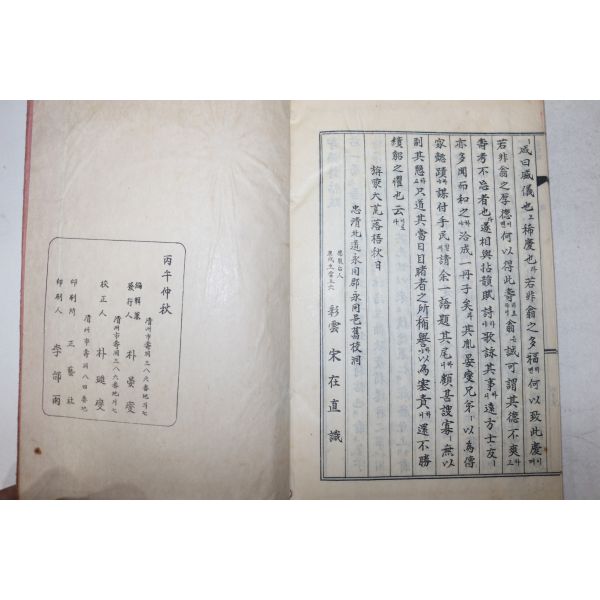 咸曰盛儀也ㅣ稀慶也ㅣ라若非翁之多福이면何以致此慶이며
若非翁之厚德이면何以得此壽리오翁은誠可謂其德不爽이라
壽考不忘者也로다遂相與拈韻賦詩하야歌詠其事하니遠方士友ㅣ
亦多聞而和之하야洽成一冊子矣라其胤晏燮兄弟ㅣ以爲傳
家懿蹟하야謀付手民할새請余一語題其尾어늘顧甚謏寡ㅣ無以
副其懇하고只道其當日目睹者之所稱譽하야以爲塞責하니還不勝
續貂之懼也云이라
旃蒙大荒落梧秋日
忠清北道永同郡永同邑舊校洞
彩雲 宋在直 識
丙午仲秋
清州市壽洞二八六番地
編輯兼
發行人 朴晏燮
清州市壽洞二八六番地
校正人 朴 燮
清州市壽洞八四番地
印刷所 正藝社
印刷人 李